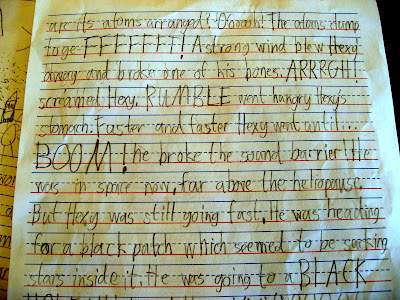 are its atoms arranged? Ooooah! The atoms clump
toge FFFFFFF! A strong wind blew Hexy
away and broke one of his bones. ARRRGH!
screamed Hexy. RUMBLE went hungry Hexy's
stomach. Faster and faster Hexy went until...
BOOM! he broke the sound barrier! He
was in space now, far above the heliopause.
But Hexy was still going fast. He was heading
for a black patch which seemed to be sucking
stars inside it. He was going to a BLACK